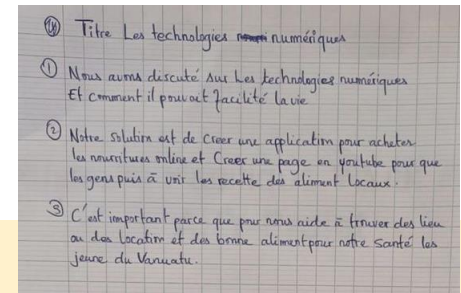 Titre Les technologies numériques
① Nous avons discuté sur Les technologies numériques
Et comment il pouvait facilité la vie
② Notre solution est de Creer une application pour acheter
les nourritures online et Creer une page en youtube pour que
les gens puis à voir les recette des aliment Locaux.
③ C'est important parce que pour nous aide à trouver des lieu
ou des Location et des bonne aliment pour notre santé les
jeune du Vanuatu.